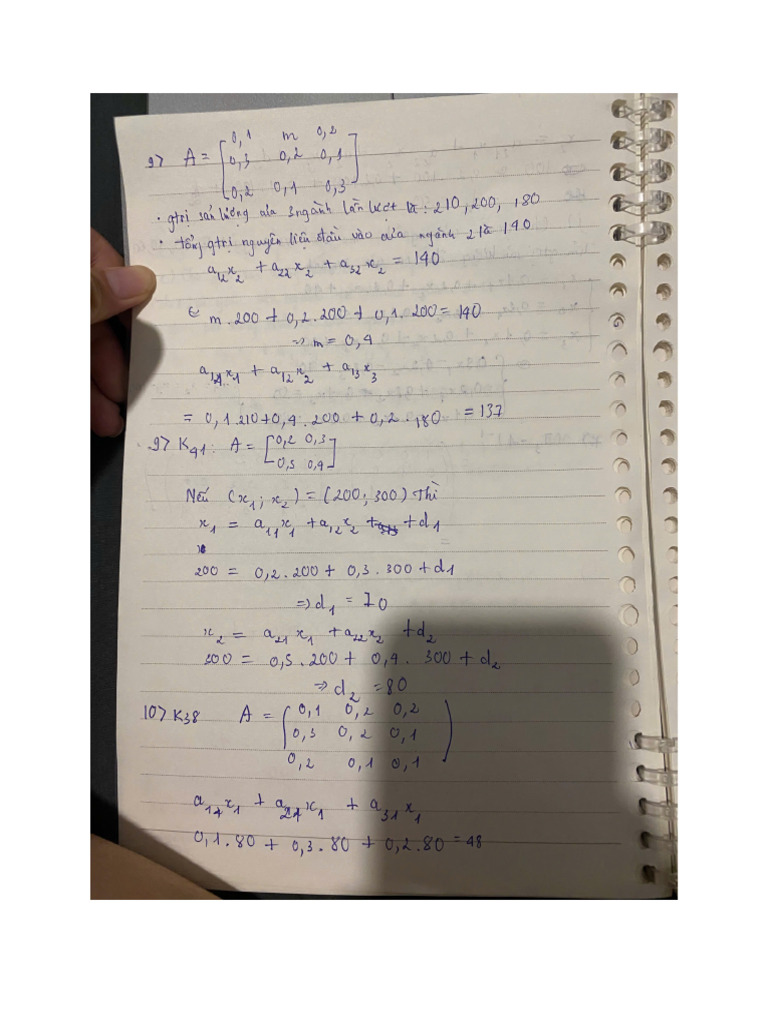 9> A = [0,1 m 0,2
0,3 0,2 0,1
0,2 0,1 0,3]
· gtrị sản lượng của 3 ngành lần lượt là: 210, 200, 180
· tổng gtrị nguyên liệu đầu vào của ngành 2 là 140
a12x2 + a22x2 + a32x2 = 140
m.200 + 0,2.200 + 0,1.200 = 140
=> m = 0,4
a11x1 + a12x2 + a13x3
= 0,1.210 + 0,4.200 + 0,2.180 = 137
9> K41: A = [0,2 0,3
0,5 0,4]
Nếu (x1; x2) = (200; 300) Thì
x1 = a11x1 + a12x2 + d1
200 = 0,2.200 + 0,3.300 + d1
=> d1 = 70
x2 = a21x1 + a22x2 + d2
300 = 0,5.200 + 0,4.300 + d2
=> d2 = 80
10> K38 A = (0,1 0,2 0,2
0,3 0,2 0,1
0,2 0,1 0,1)
a11x1 + a21x1 + a31x1
0,1.80 + 0,3.80 + 0,2.80 = 48